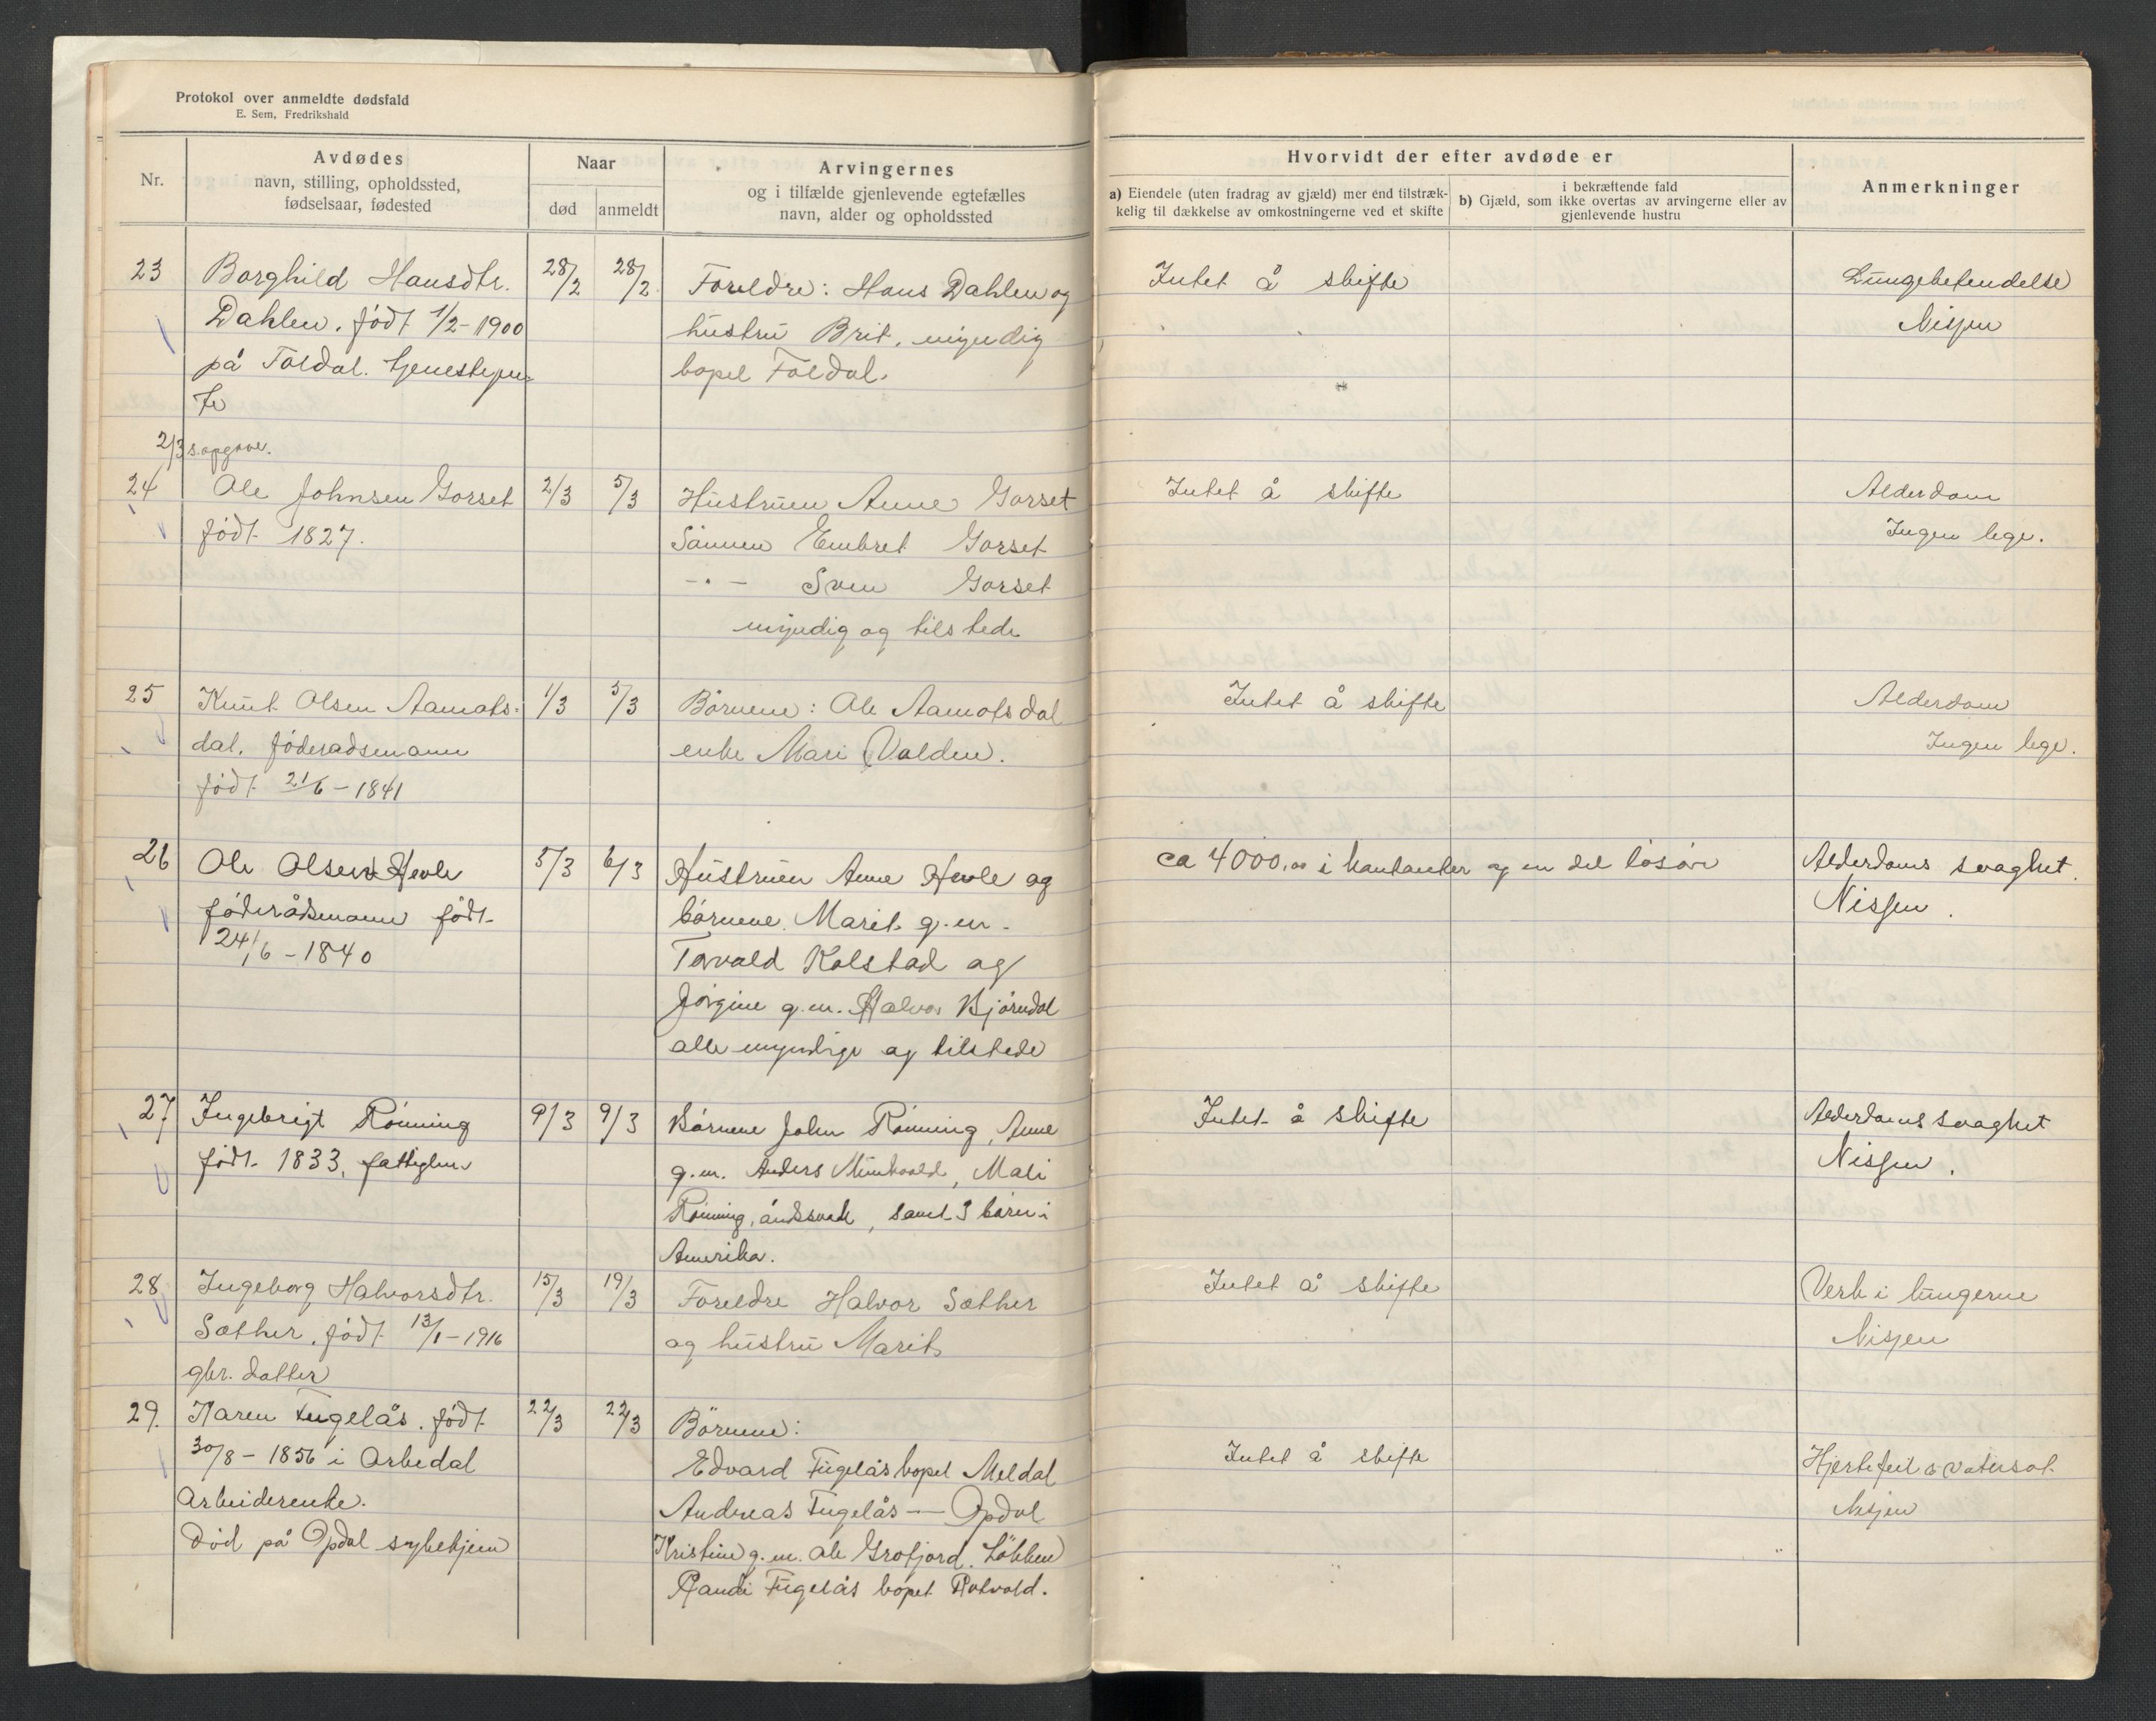 Protokol over anmeldte dødsfald
E. Sem, Fredrikshald
Nr.
Avdødes
navn, stilling, opholdssted,
fødselsaar, fødested
Naar
død
anmeldt
Arvingernes
og i tilfælde gjenlevende egtefælles
navn, alder og opholdssted
Hvorvidt der efter avdøde er
a) Eiendele (uten fradrag av gjæld) mer end tilstræk-
kelig til dækkelse av omkostningerne ved et skifte
i bekræftende fald
b) Gjæld, som ikke overtas av arvingerne eller av
gjenlevende hustru
Anmerkninger
23 Borghild Hansdtr. 28/2 28/2 Foreldre: Hans Dahlen og Intet å skifte Lungebetendelse
Dahlen. født 1/2-1900 hustru Brit. myndig Nisjen
på Foldal. tjenestepi- bopel Foldal.
ke
2/3 s. opgave.
24 Ole Johnsen Gorset 2/3 5/3 Hustruen Anne Gorset Intet å skifte Alderdom
født 1827. Sønnen Embret Gorset Ingen lege.
-"- Sven Gorset
myndig og tilstede
25 Knut Olsen Aamots- 1/3 5/3 Børnene: Ole Aamotsdal Intet å skifte Alderdom
dal. føderadsmann enke Mari Volden. Ingen lege.
født 21/6-1841
26 Ole Olsen Hevle 5/3 6/3 Hustruen Anne Hevle og ca 4000,00 i banken og en del løsøre Alderdoms svaghet.
føderådsmann født børnene. Marit g.m. Nisjen.
24/6-1840 Torvald Kolstad og
Jørgine g.m. Halvor Bjørndal
alle myndige og tilstede
27 Ingebrigt Rönning 9/3 9/3 Børnene John Rönning, Anne Intet å skifte Alderdoms svaghet
født 1833, fattiglem g.m. Anders Munkvold, Mali Nisjen.
Rönning, åndssvak, samt 3 børn i
Amerika.
28 Ingeborg Halvorsdtr. 15/3 19/3 Foreldre Halvor Sæther Intet å skifte Verk i lungerne
Sæther. født 13/1-1916 og hustru Marit Nisjen
gbr. datter
29. Karen Fugelås. født 22/3 22/3 Börnene:
30/8-1856 i Orkedal Edvard Fugelås bopel Meldal Intet å skifte Hjertefeil & vatersot
Arbeiderenke. Andreas Fugelås — Opdal Nisjen
Död på Opdal sykehjem Kristine g.m. Ole Grotjord. Lökken
Randi Fugelås bopel Rotvold.